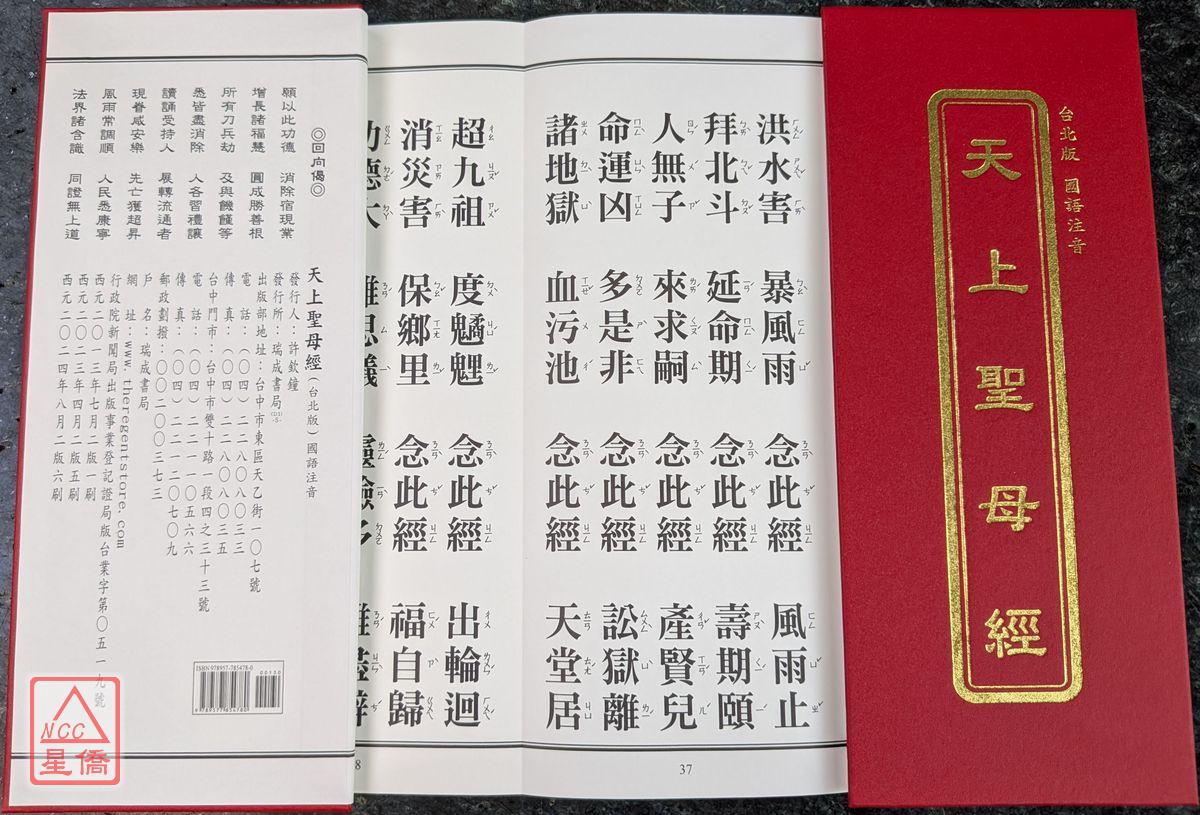 台北版 國語注音
天上聖母經
洪水害 暴風雨 念此經 風雨止
拜北斗 延命期 念此經 壽期頤
人無子 來求嗣 念此經 產賢兒
命運凶 多是非 念此經 訟獄離
諸地獄 血污池 念此經 天堂居
37
超九祖 度魑魅 念此經 出輪迴
消災害 保鄉里 念此經 福自歸
功德大 難思議 靈驗多
◎回向偈◎
願以此功德 消除宿現業
增長諸福慧 圓成勝善根
所有刀兵劫 及與饑饉等
悉皆盡消除 人各習禮讓
讀誦受持人 展轉流通者
現眷咸安樂 先亡獲超昇
風雨常調順 人民悉康寧
法界諸含識 同證無上道
天上聖母經(台北版)國語注音
發行人：許欽鐘
發行所：瑞成書局
出版部地址：台中市東區天乙街一〇七號
電話：(〇四)二二八〇八〇三三
傳真：(〇四)二二八〇八〇三五
台中門市：台中市雙十路一段四之三十三號
電話：(〇四)二二一一〇五六六
傳真：(〇四)二二一二〇七〇九
郵政劃撥：〇〇二〇〇三七三
戶名：瑞成書局
網址：www.theregentstore.com
行政院新聞局出版事業登記證局版台業字第〇五一九號
西元二〇一三年七月二版一刷
西元二〇二三年四月二版五刷
西元二〇二四年八月二版六刷
ISBN 978957-785478-0
00130
9789577854780
NCC
星僑